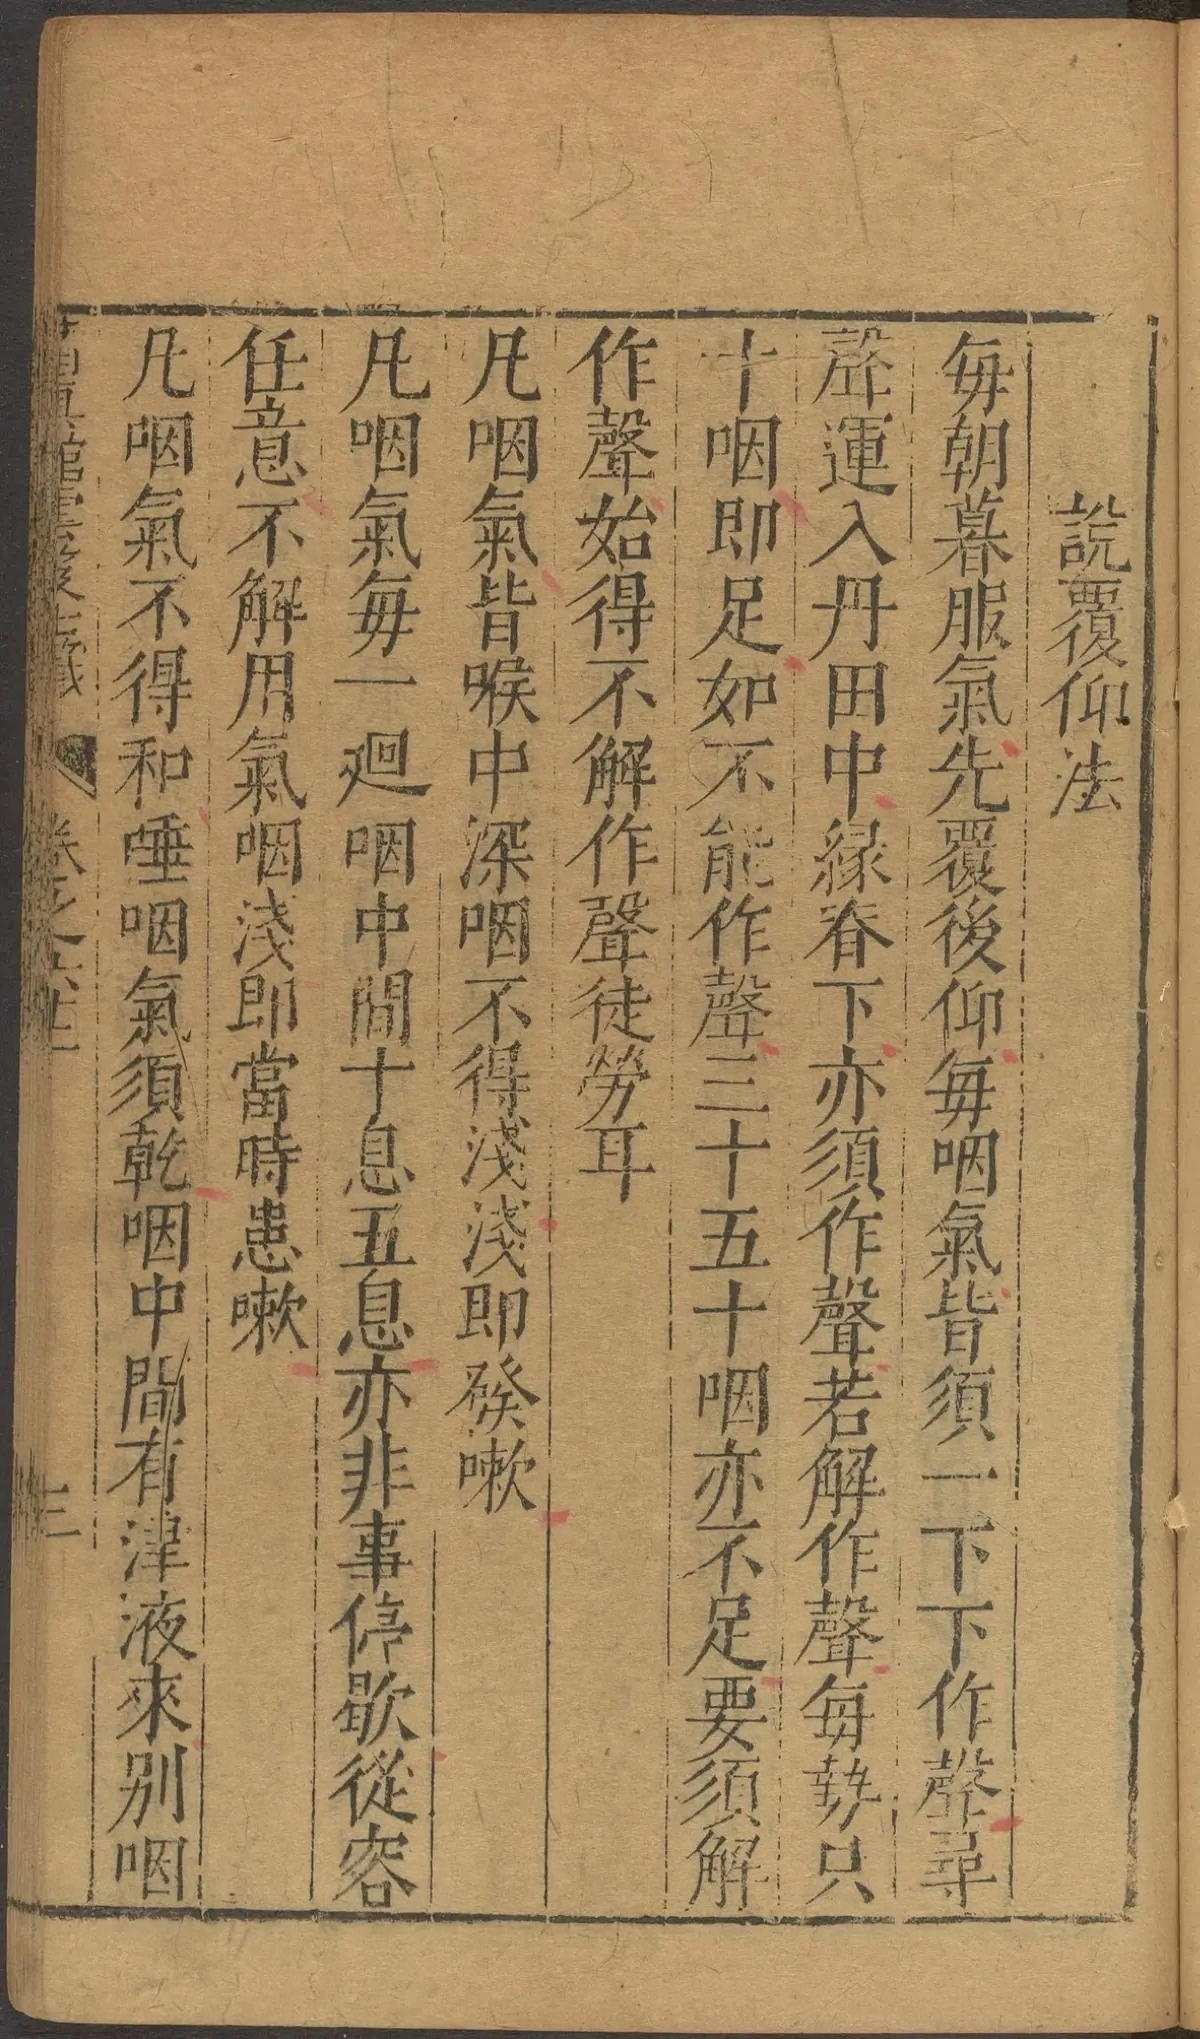 說覆仰法
每朝暮服氣先覆後仰每咽氣皆須一下下作聲尋
聲運入丹田中緣脊下亦須作聲若解作聲每勢只
十咽即足如不能作聲三十五十咽亦不足要須解
作聲始得不解作聲徒勞耳
凡咽氣皆喉中深咽不得淺淺即發嗽
凡咽氣每一廻咽中間十息五息亦非事停歇從容
任意不解用氣咽淺即當時患嗽
凡咽氣不得和唾咽氣須乾咽中間有津液來別咽
清真館雲笈七籤 卷之六十一 三